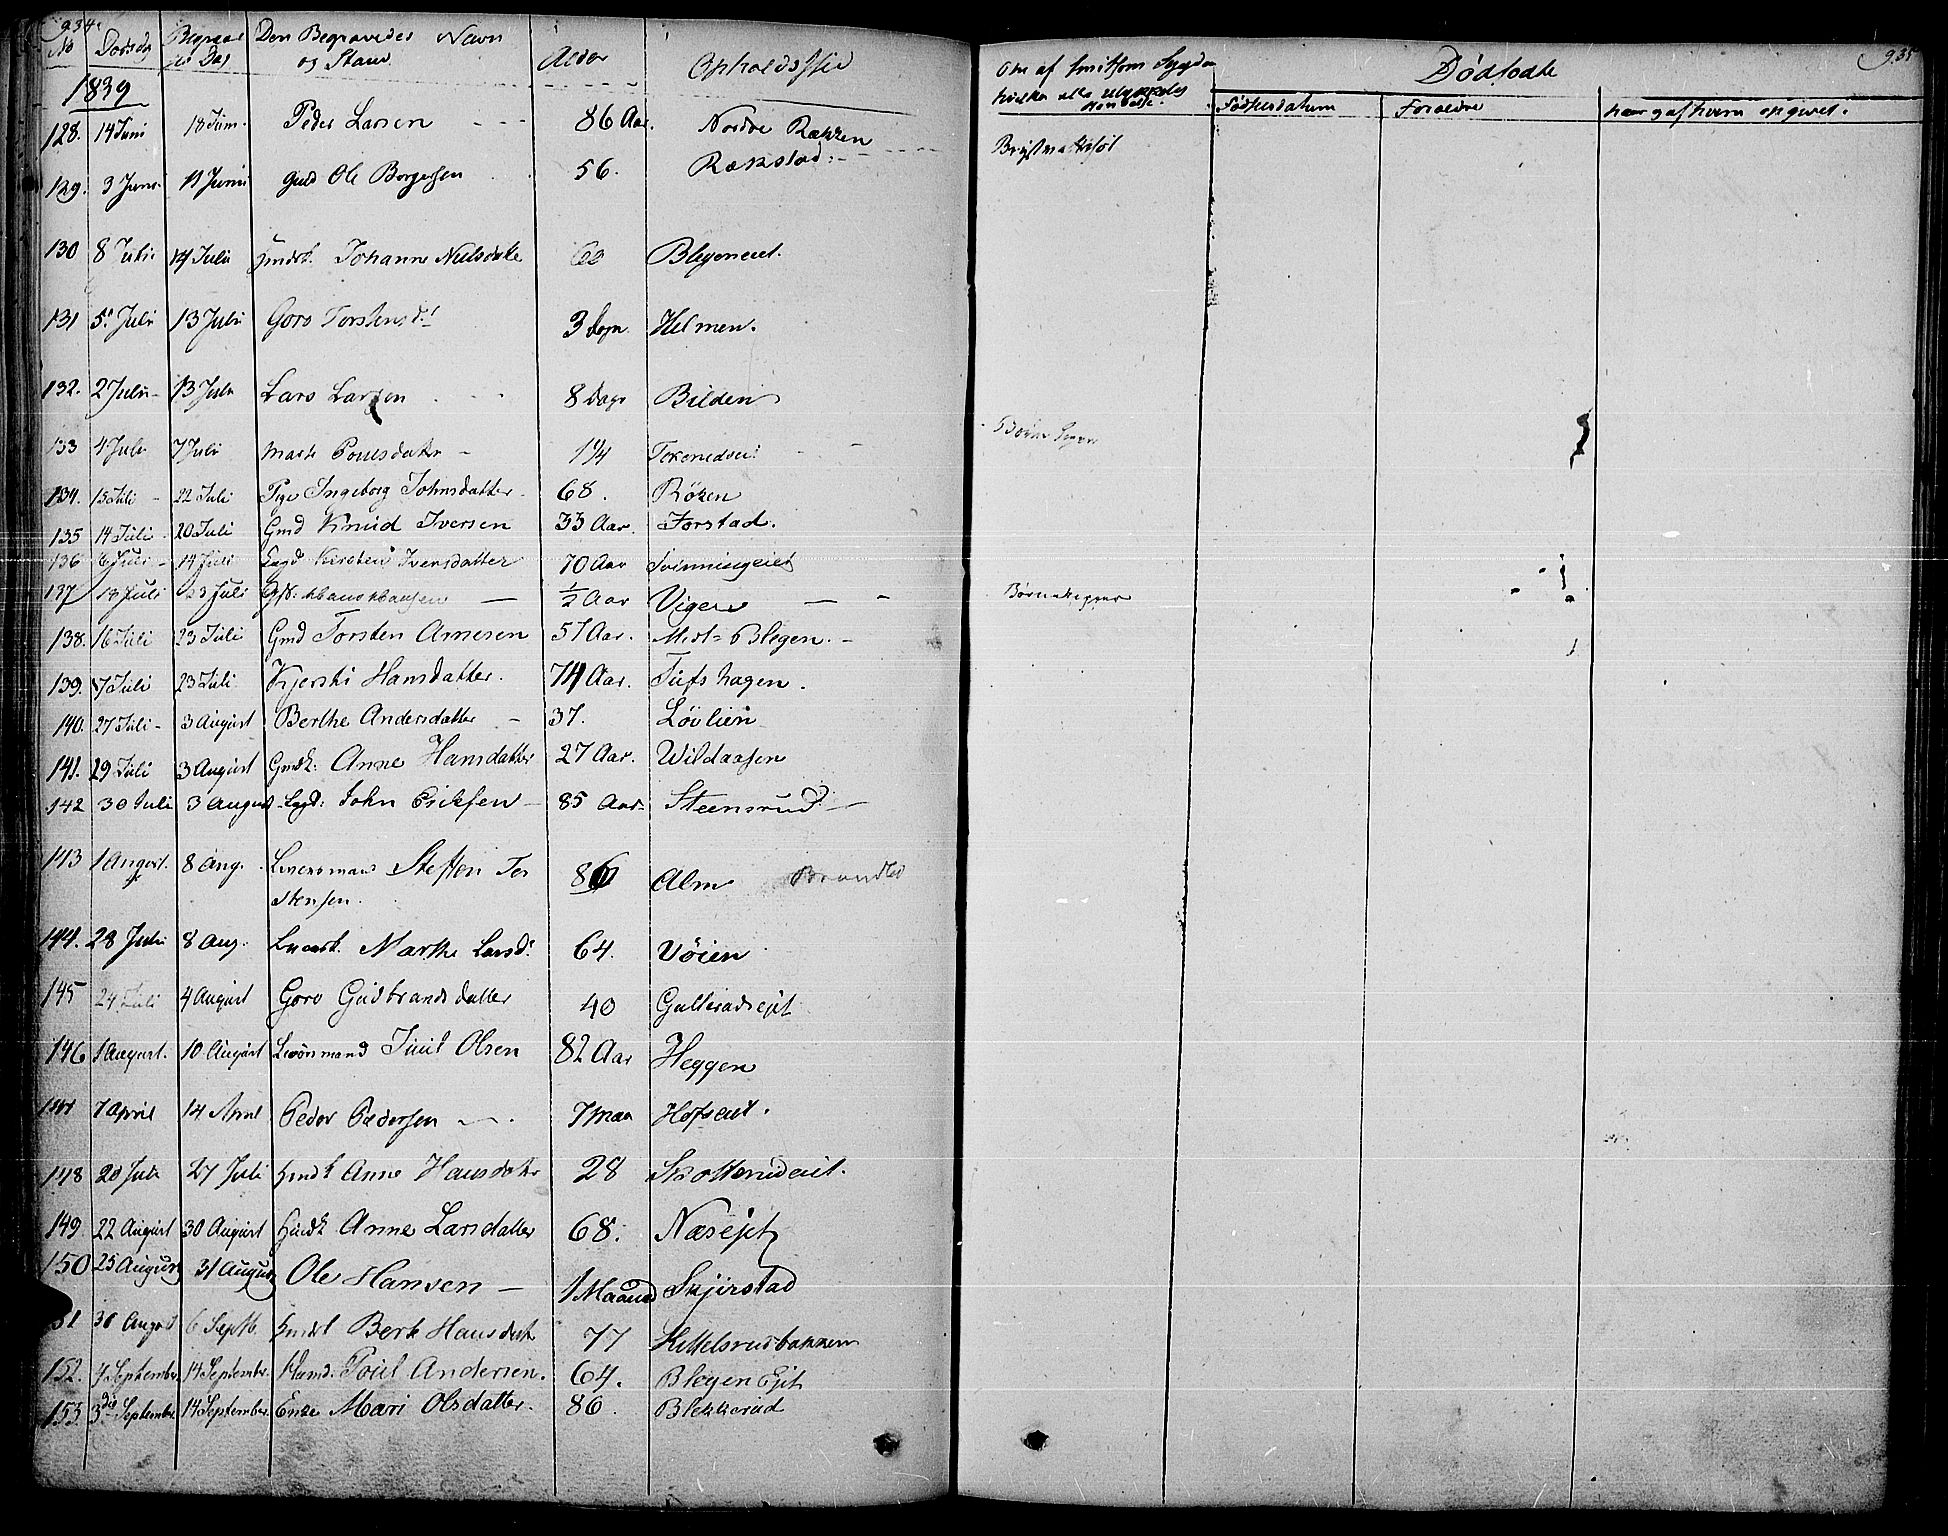 934.
No Dødsdag Begravelses Dag Den Begravedes Navn og Stand. Alder Opholdssted
1839
128. 14 Juni 18 Juni. Peder Larsen - - - 86 Aar. Nordre Rækken
129. 3 Juni 11 Juni Ole Borgersen 56. Rækstad: -
130 8 Juli 14 Juli Johanne Nilsdatter 60 Blegeneiet.
131 5 Juli 13 Juli Goro Torstensd. 3 dage Helmen.
132. 2 Juli - 13 Juli Lars Larsen 8 Dage Bilden
133 4 Juli 7 Juli Marte Poulsdatter - 1¼
134. 15 Juli - 22 Juli Pige Ingeborg Johnsdatter. 68. Røken
135 14 Juli 20 Juli Gmd Knud Iversen 33 Aar. Forstad.
136 6 Juli - 14 Juli Kirsten Iversdatter 70 Aar Svinningeiet
137 13 Juli 23 Juli Hans Hansen — ½ Aar Vigen — -
138. 16 Juli 23 Juli Gmd Torsten Arnesen 57 Aar. Blegen. -
139. 7 Juli 23 Juli Kjersti Hansdatter. 74 Aar. Tufshagen.
140. 27 Juli - 3 August Berthe Andersdatter - 37. Løvlien
141. 29 Juli 3 August Gmdk: Anne Hansdatter 27 Aar. Wildaasen
142 30 Juli 3 August Lægd: John Erichsen - 85 Aar. Steensrud -
143 1 August. 8 Aug. Steffen Tor
stensen. 86 Alm
144. 28 Juli 8 Aug. Marthe Larsd. 64. Vøien
145 24 Juli 4 August Goro Gudbrandsdatter 40 Gullerudsejet
146 1 August. 10 August Juul Olsen 82 Aar Heggen
147 7 April 14 April Peder Pedersen - . 7 maa Hofseiet.
148 20 Juli 27 Juli Anne Hansdatter 28 Skotterudeiet.
149. 22 August 30 August Anne Larsdatter 68. Næsejet
150 25 August 31 August Ole Hansen - 1 Maaned Skjerstad
151 30 August 6 Septb. Berte Hansdatter 77 Kittelsrudbakken
152. 4 September 14 September. Huusmd: Poul Andersen. 64. Blegen Ejet
153 3die September 14 September. Enke Mari Olsdatter. 86. Blekkerud
935
Om af smitsom Sygdom hvilken eller Ulykkeshændelse.
Dødfødte
Fødselsdatum Forældre naar og af hvem opgivet.
Brystvattersot